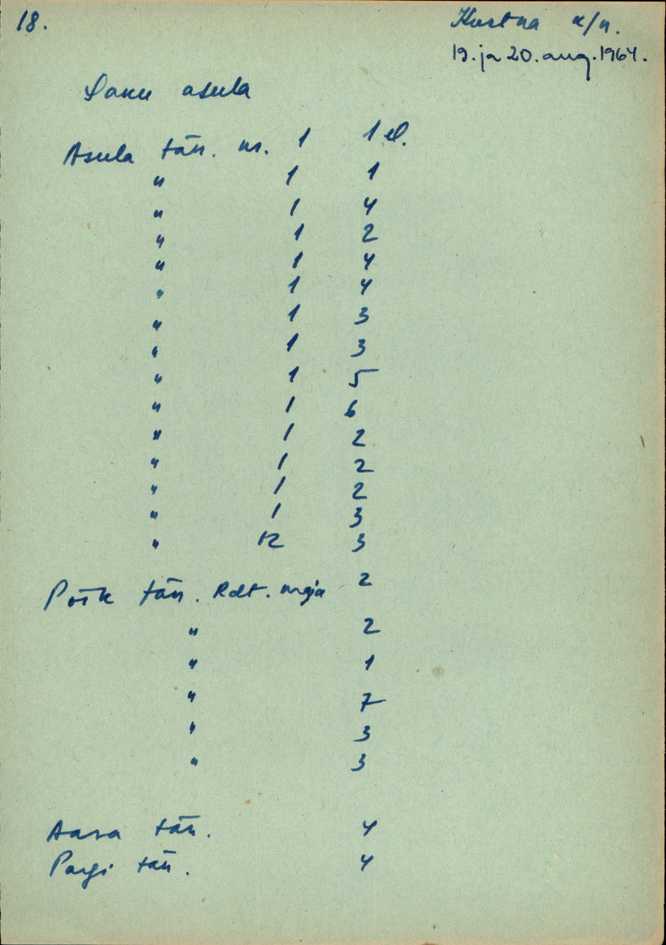 18.
Kustna k/n.
19. ja 20. aug. 1964.
Saku asula
Asula tän. nr. 1 1 el.
" 1 1
" 1 4
" 1 2
" 1 4
" 1 4
" 1 3
" 1 3
" 1 5
" 1 6
" 1 2
" 1 2
" 1 2
" 1 3
" 12 3
Põik tän. Rdt. maja 2
" 2
" 1
" 7
" 3
" 3
Aasa tän. 4
Pargi tän. 4